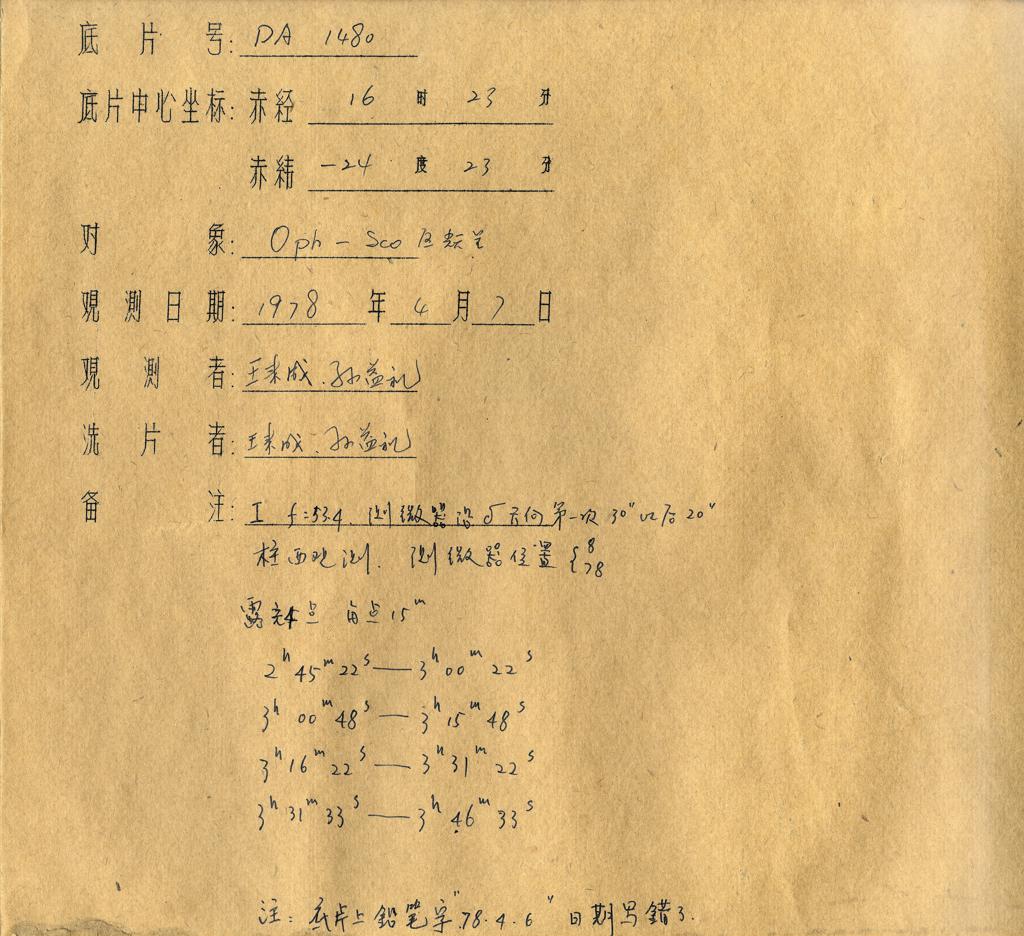 底片号: DA 1480
底片中心坐标: 赤经 16 时 23 分
赤纬 -24 度 23 分
对象: Oph - Sco 区
观测日期: 1978 年 4 月 7 日
观测者: 孙益礼
洗片者: 孙益礼
备注: I f=53.4. 测微器沿δ方向第一次 30" 以后 20"
柱西观测. 测微器位置 { 8 78
露光4点 每点15ᵐ
2ʰ45ᵐ22ˢ — 3ʰ00ᵐ22ˢ
3ʰ00ᵐ48ˢ — 3ʰ15ᵐ48ˢ
3ʰ16ᵐ22ˢ — 3ʰ31ᵐ22ˢ
3ʰ31ᵐ33ˢ — 3ʰ46ᵐ33ˢ
注: 底片上鉛笔字"78.4.6"日期写錯了.